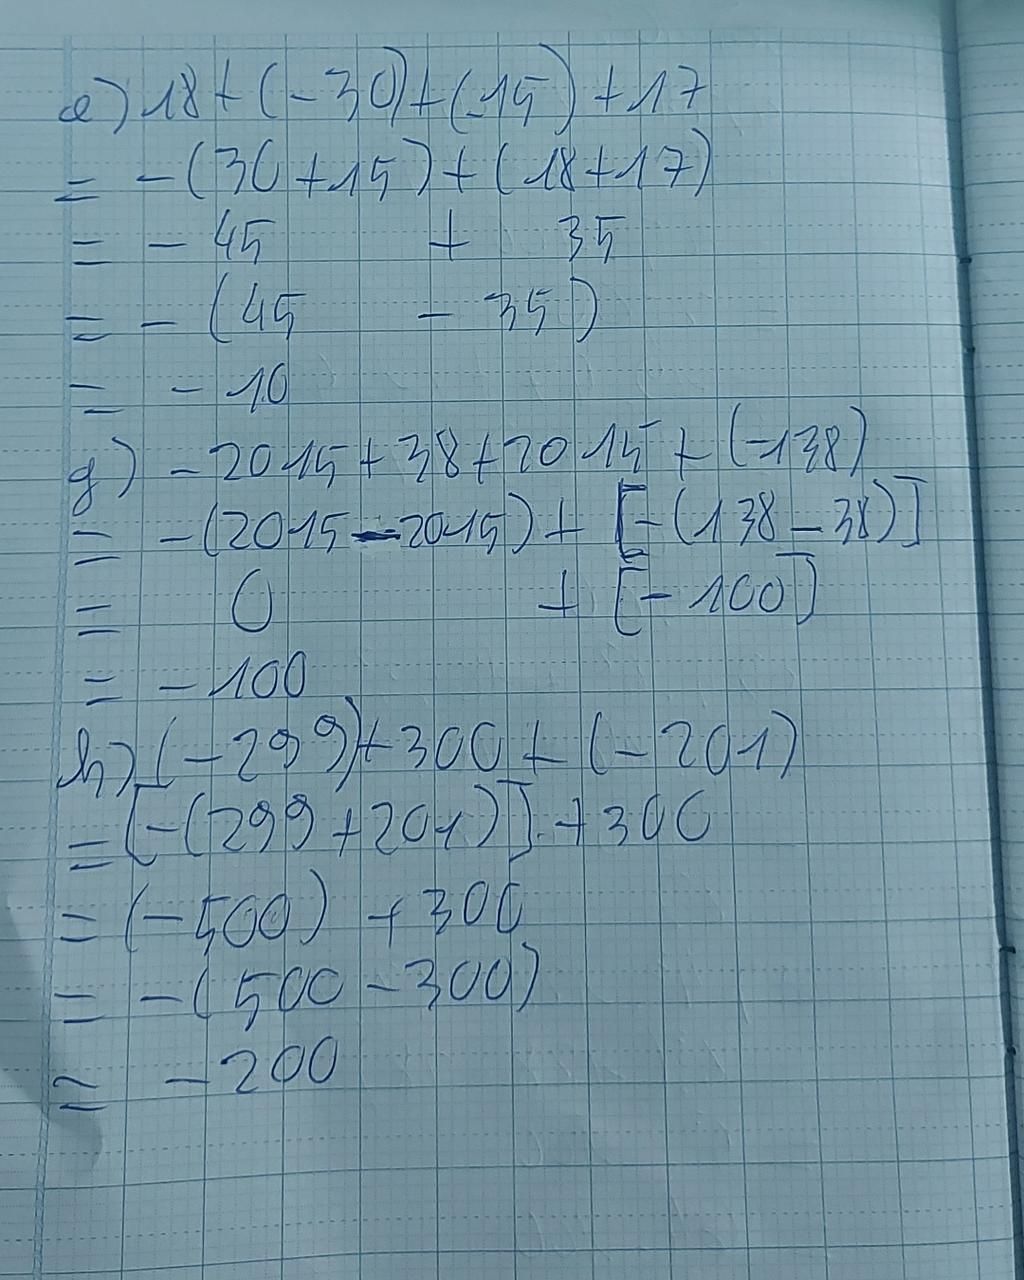 e) 18 + (-30) + (-15) + 17
= -(30 + 15) + (18 + 17)
= - 45 + 35
= - (45 - 35)
= - 10
g) - 2015 + 38 + 2015 + (-138)
= -(2015 - 2015) + [-(138 - 38)]
= 0 + [- 100]
= - 100
h) (-299) + 300 + (-201)
= [-(299 + 201)] + 300
= (-500) + 300
= -(500 - 300)
= - 200